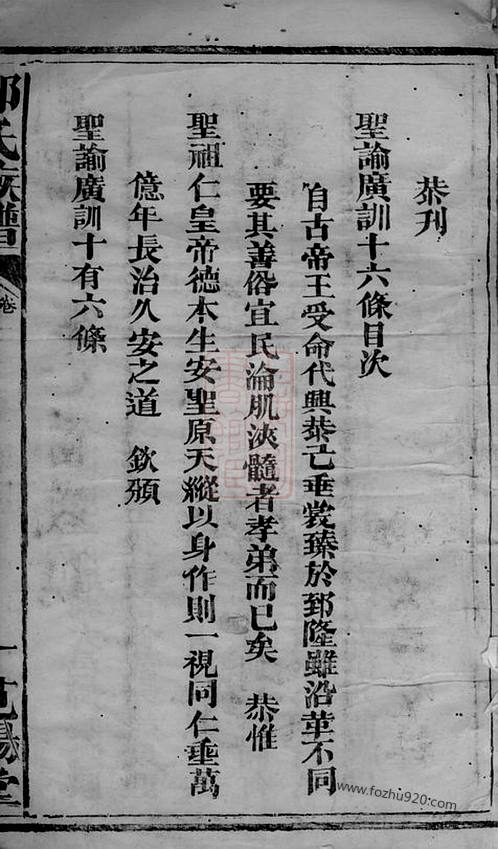 恭刊
聖諭廣訓十六條目次
自古帝王受命代興恭己垂裳臻於郅隆雖沿革不同
要其善俗宜民淪肌浹髓者孝弟而已矣　恭惟
聖祖仁皇帝德本生安聖原天縱以身作則一視同仁垂萬
億年長治久安之道　欽頒
聖諭廣訓十有六條
氏族譜
卷
一
堂
www.fozhu920.com